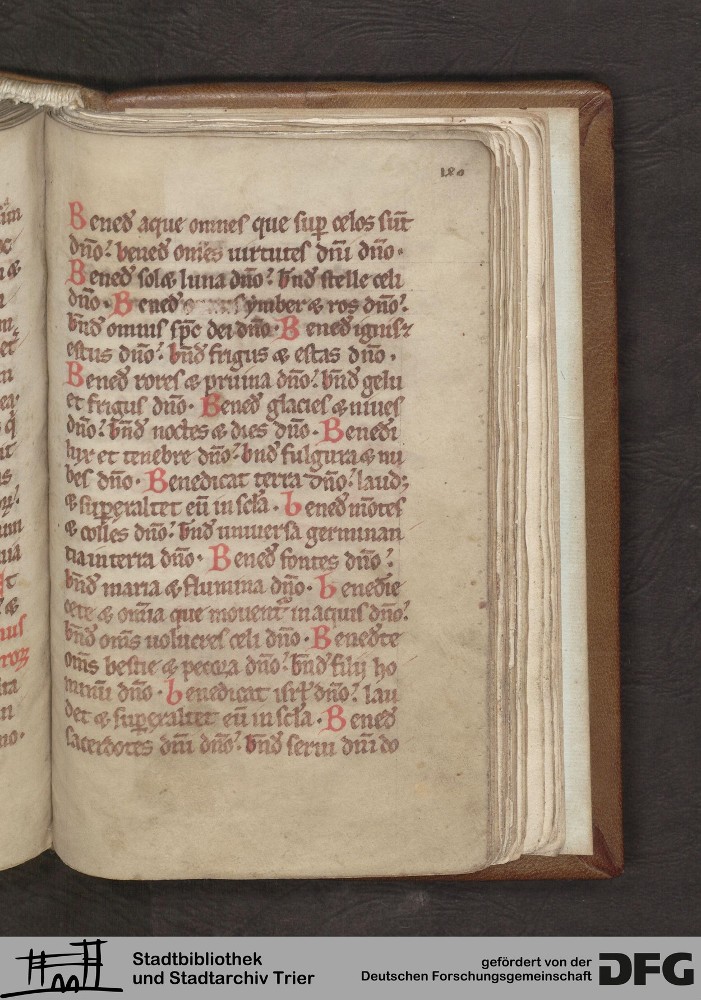 180
Bened̄ aque omnes que sup̄ celos sūt
dn̄o. bened̄ om̄es uirtutes dn̄i dn̄o.
Bened̄ sol & luna dn̄o. bn̄d stelle celi
dn̄o. Bened̄ ymber & ros dn̄o.
bn̄d omnis sp̄c dei dn̄o. Bened̄ ignis &
estus dn̄o. bn̄d frigus & estas dn̄o.
Bened̄ rores & pruina dn̄o. bn̄d gelu
et frigus dn̄o. Bened̄ glacies & niues
dn̄o. bn̄d noctes & dies dn̄o. Benedi
lux et tenebre dn̄o. bn̄d fulgura & nu
bes dn̄o. Benedicat terra dn̄o. laud;
& sup̱exaltet eū in sc̄la. bened̄ mōtes
& colles dn̄o. bn̄d uniuersa germinan
tia in terra dn̄o. Bened̄ fontes dn̄o.
bn̄d maria & flumina dn̄o. benedie
cete & om̄ia que mouent᷑ in aquis dn̄o.
bn̄d om̄s uolucres celi dn̄o. Bened̄te
om̄s bestie & pecora dn̄o. bn̄d filii ho
minū dn̄o. benedicat isrl̄ dn̄o. lau
det & sup̱exaltet eū in sc̄la. Bened̄
sacerdotes dn̄i dn̄o. bn̄d serui dn̄i do
Stadtbibliothek
und Stadtarchiv Trier
gefördert von der
Deutschen Forschungsgemeinschaft
DFG